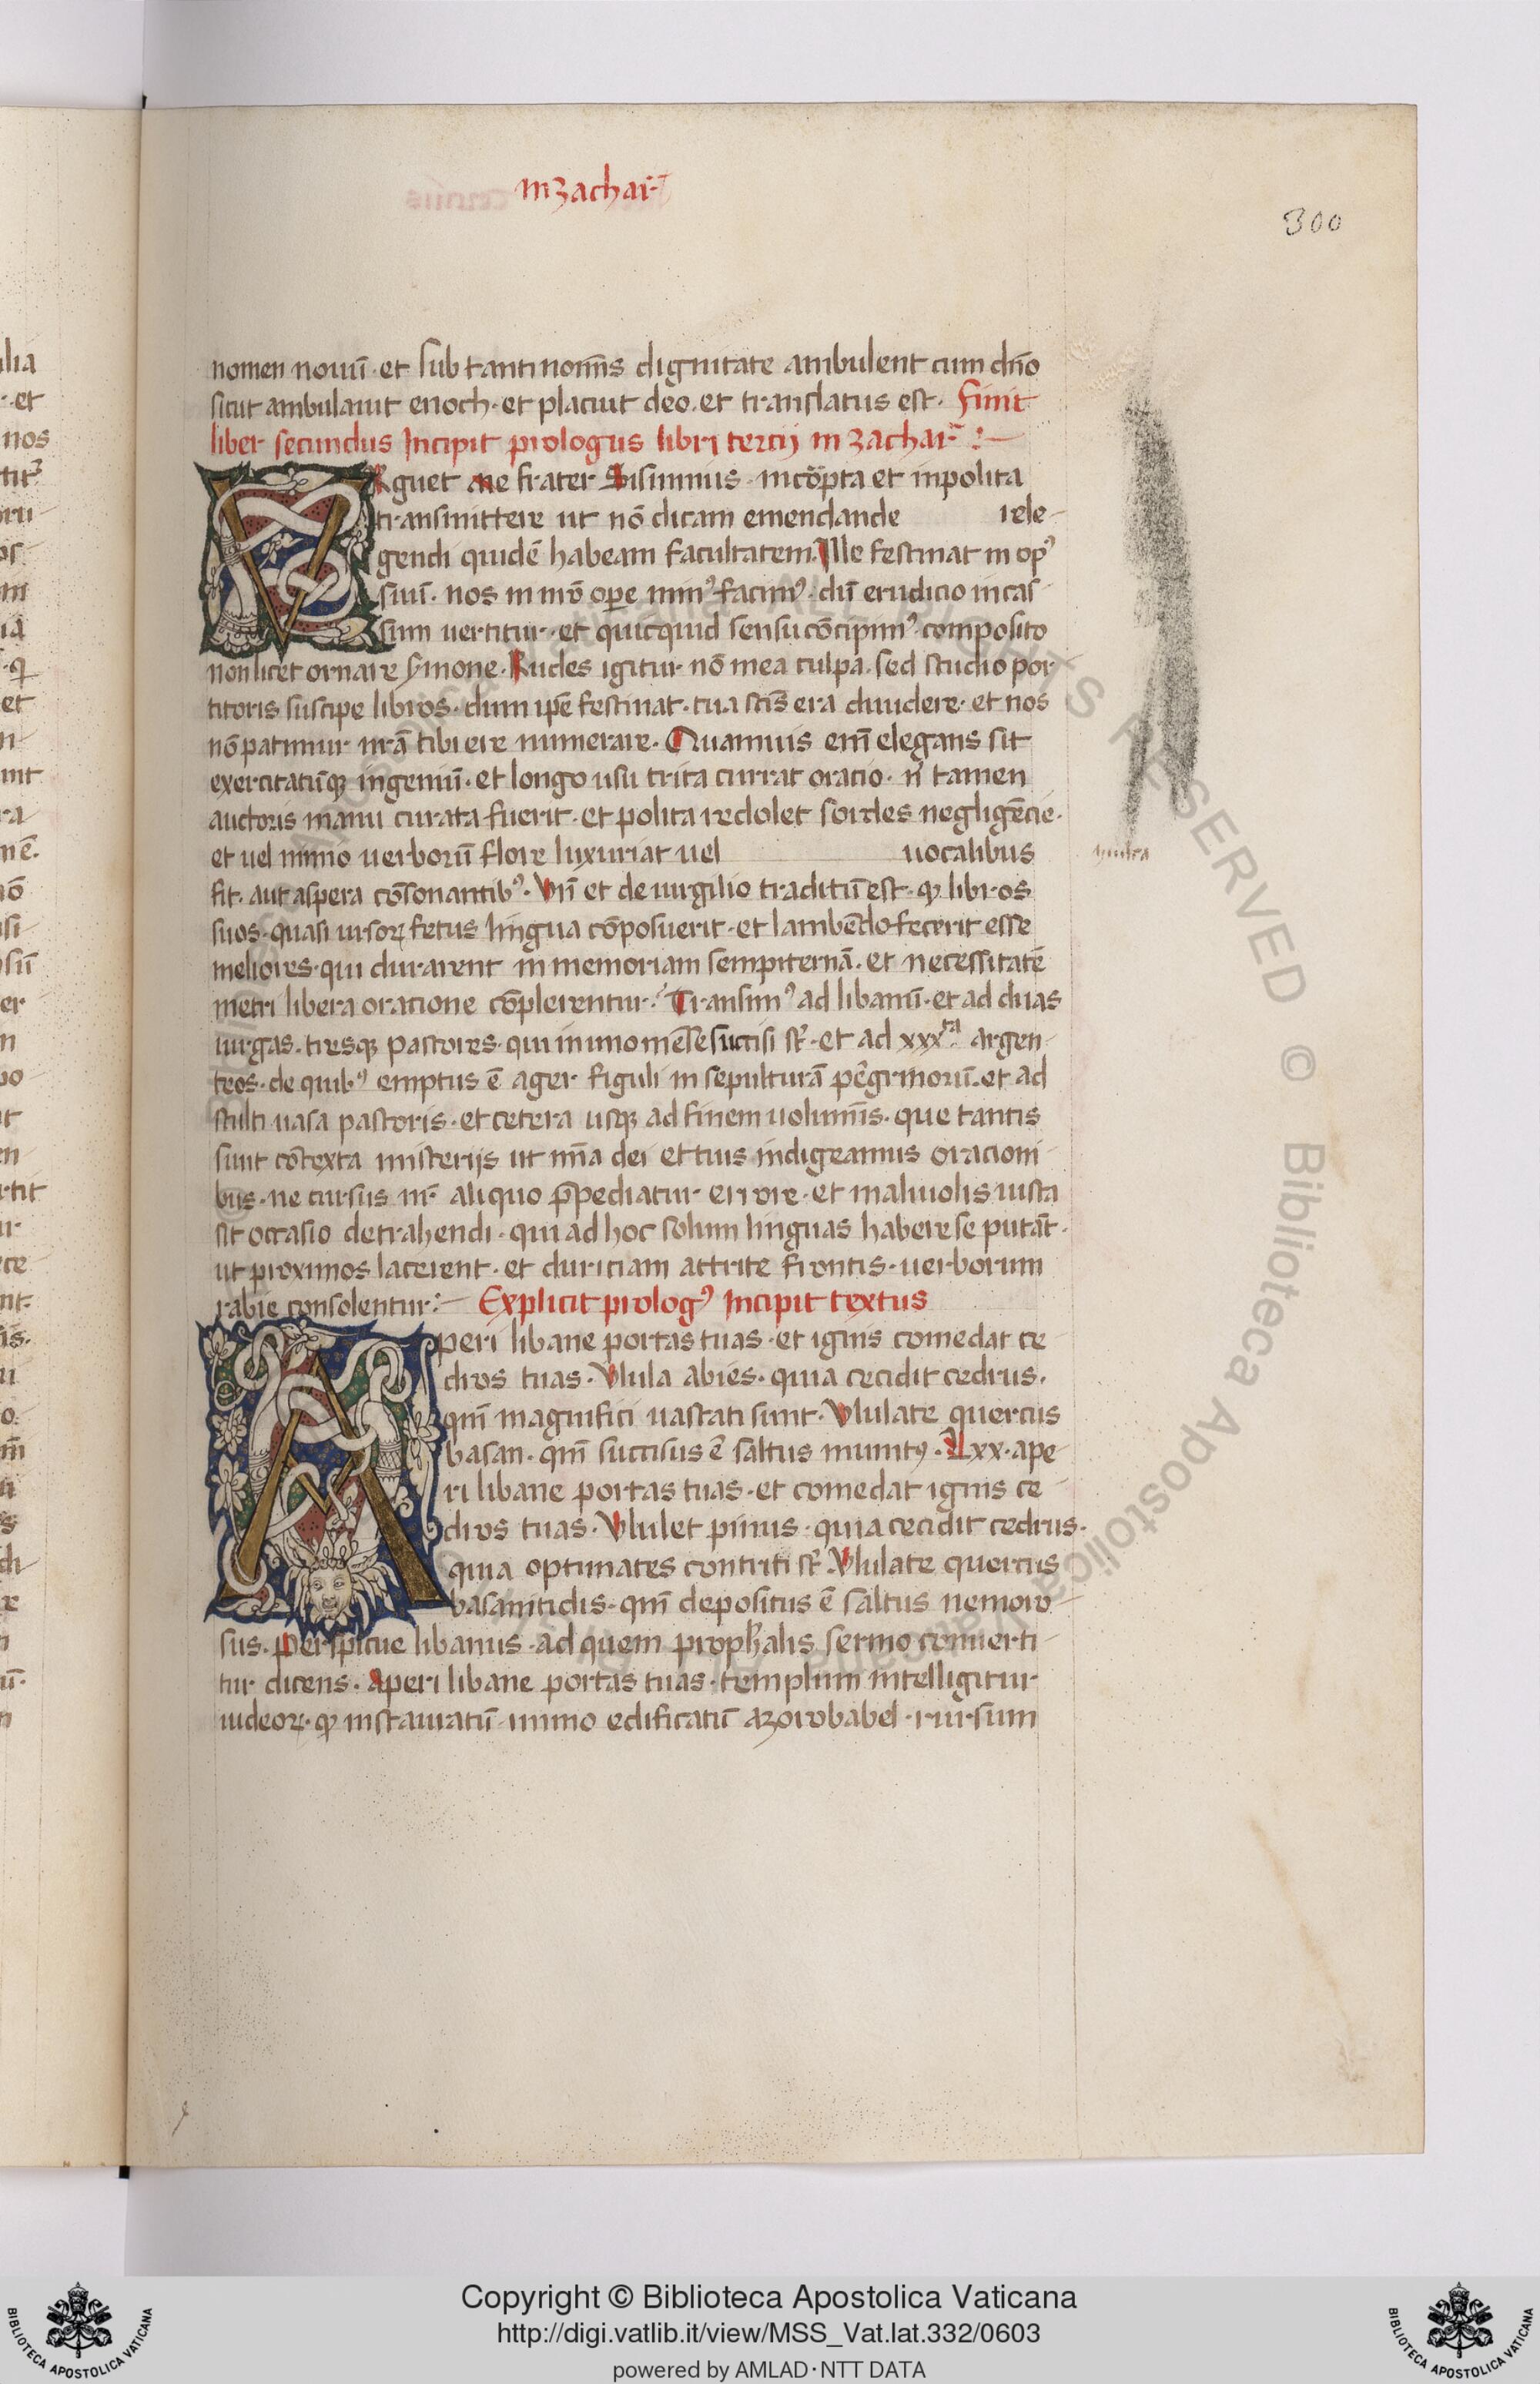 in zachar̄
300
nomen nouū · et sub tanti nom̄is dignitate ambulent cum dn̄o
sicut ambulauit enoch · et placuit deo · et translatus est · Finit
liber secundus Incipit prologus libri tercij in zachar̄ :—
VRguet me frater Sisinnius · incōpta et inpolita
transmittere ut nō dicam emendande rele-
gendi quidē habeam facultatem. Ille festinat in opꝰ
suū · nos in nr̄o oꝑe minꝰ facimꝰ · dū erudicio incas-
sum uertitur · et quicquid sensu cōcipimꝰ · composito
non licet ornare s̄mone · Rudes igitur nō mea culpa · sed studio por-
titoris suscipe libros · dum ip̄e festinat · tua stīs era diuidere · et nos
nō patimur nr̄a tibi ere numerare · Quamuis eni̅ elegans sit
exercitatūqꝫ ingeniū · et longo usu trita currat oratio · n̄ tamen
auctoris manu curata fuerit · et polita redolet sordes negligēcie ·
et uel nimio uerborū flore luxuriat uel uocalibus
fit · aut aspera cōsonantibꝰ · Vn̄ et de uirgilio traditū est · ꝙ libros
suos · quasi ursoꝝ fetus lingua cōposuerit · et lambēdo fecerit esse
meliores · qui durarent in memoriam sempiternā · et necessitatē
metri libera oratione cōplerentur · Transimꝰ ad libanū · et ad duas
uirgas · tresqꝫ pastores · qui in uno mēse succisi st̄ · et ad xxxta argen-
teos · de quibꝰ emptus ē ager figuli in sepulturā pegrinorū · et ad
stulti uasa pastoris · et cetera usqꝫ ad finem uolum̄is · que tantis
sunt cōtexta misterijs ut mīa dei et tuis indigeamus oracioni-
bus · ne cursus nr̄ aliquo p̄pediatur errore · et maliuolis iusta
sit occasio detrahendi · qui ad hoc solum linguas habere se putāt ·
ut proximos lacerent · et duriciam attrite frontis · uerborum
rabie consolentur :— Explicit prologꝰ Incipit textus
Aperi libane portas tuas · et ignis comedat ce
dros tuas · Vlula abies · quia cecidit cedrus ·
qm̄ magnifici uastati sunt · Vlulate quercus
basan · qm̄ succisus ē saltus munitꝰ · Lxx · ape-
ri libane portas tuas · et comedat ignis ce-
dros tuas · Vlulet pinus · quia cecidit cedrus ·
quia optimates contriti st̄ · Vlulate quercus
basanitidis · qm̄ depositus ē saltus nemoro-
sus · Perspicue libanus · ad quem proph̄alis sermo conuerti-
tur dicens · Aperi libane portas tuas · templum intelligitur
iudeoꝝ · ꝙ instauratū immo edificatū azorobabel · rursum
Copyright © Biblioteca Apostolica Vaticana
http://digi.vatlib.it/view/MSS_Vat.lat.332/0603
powered by AMLAD·NTT DATA
BIBLIOTECA APOSTOLICA VATICANA
BIBLIOTECA APOSTOLICA VATICANA